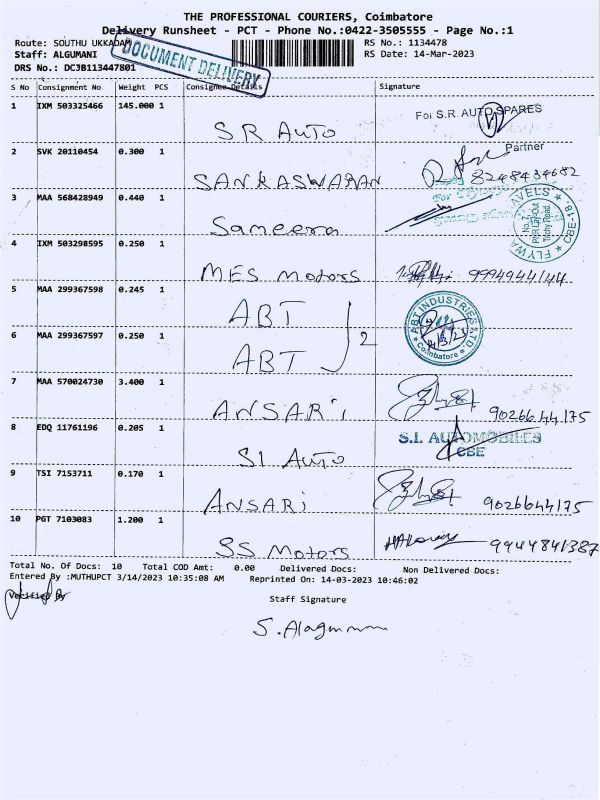 THE PROFESSIONAL COURIERS, Coimbatore
Delivery Runsheet - PCT - Phone No.:0422-3505555 - Page No.:1
Route: SOUTHU UKKADAM
RS No.: 1134478
Staff: ALGUMANI
RS Date: 14-Mar-2023
DRS No.: DCJB113447801
DOCUMENT DELIVERY
S No Consignment No Weight PCS Consignee Details Signature
1 IXM 503325466 145.000 1 SR Auto For S.R. AUTO SPARES
Partner
2 SVK 20110454 0.300 1 SANKASWARAN 8248434682
3 MAA 568428949 0.440 1 Sameera
FLYWA AVELS CBE-18
4 IXM 503298595 0.250 1 MFS Motors 9994944144
5 MAA 299367598 0.245 1 ABT
ABT INDUSTRIES LTD Coimbatore
14/3/23
6 MAA 299367597 0.250 1 ABT 2
7 MAA 570024730 3.400 1 ANSARi 9026644175
8 EDQ 11761196 0.205 1 SI Auto S.I. AUTOMOBILES
CBE
9 TSI 7153711 0.170 1 ANSARi 9026644175
10 PGT 7103083 1.200 1 SS Motors 9944841387
Total No. Of Docs: 10 Total COD Amt: 0.00 Delivered Docs: Non Delivered Docs:
Entered By :MUTHUPCT 3/14/2023 10:35:08 AM Reprinted On: 14-03-2023 10:46:02
Verified By
Staff Signature